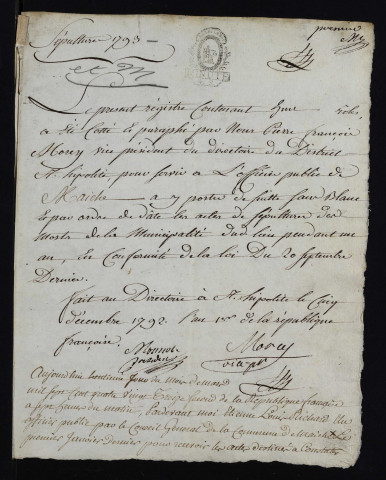 Sépulture 1793
premier
Le present régistre Contenant huit rôle
a été Cotté et paraphé par Nous Pierre françois
Morey vice président du directoire du District
St hipolite, pour servir à L'officier public de
Maiche a y porter de suitte sans Blanc
et par ordre de date les actes de sépulture des
morts de la Municipalité dud lieu pendant une
an, En Conformité de la loi Du 20 septembre
Dernier.
fait au Directoire à St hipolite le Cinq
décembre 1792. l'an 1er de la république
françoise.
Morey
vice pt
Aujourdhui trentieme Jour du mois de mars
mil sept cent quatre vingt treize second de la République française
a sept heures du matin, Pardevant moi Etienne Louis Richard
officier public par le Conseil General de la Commune de Maiche Le
premier janvier dernier pour recevoir les actes destinés a Constater